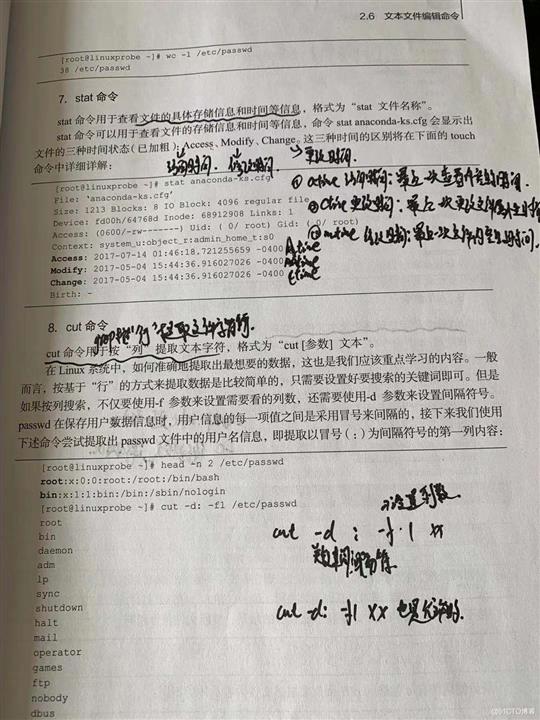 2.6 文本文件编辑命令
[root@linuxprobe ~]# wc -l /etc/passwd
38 /etc/passwd
7. stat 命令
stat 命令用于查看文件的具体存储信息和时间等信息，格式为“stat 文件名称”。
stat 命令可以用于查看文件的存储信息和时间等信息，命令 stat anaconda-ks.cfg 会显示出
文件的三种时间状态（已加粗）：Access、Modify、Change。这三种时间的区别将在下面的 touch
命令中详细详解：
访问时间 修改时间 更改时间
[root@linuxprobe ~]# stat anaconda-ks.cfg
① atime 访问时间：最近一次查看内容的时间.
File: ‘anaconda-ks.cfg’
Size: 1213 Blocks: 8 IO Block: 4096 regular file
② ctime 更改时间：最近一次更改文件属性的时间
Device: fd00h/64768d Inode: 68912908 Links: 1
Access: (0600/-rw-------) Uid: ( 0/ root) Gid: ( 0/ root)
③ mtime 修改时间：最近一次文件内容的时间.
Context: system_u:object_r:admin_home_t:s0
Access: 2017-07-14 01:46:18.721255659 -0400 Atime
Modify: 2017-05-04 15:44:36.916027026 -0400 mtime
Change: 2017-05-04 15:44:36.916027026 -0400 ctime
Birth: -
8. cut 命令
grep 按“行”提取文本字符.
cut 命令用于按“列”提取文本字符，格式为“cut [参数] 文本”。
在 Linux 系统中，如何准确地提取出最想要的数据，这也是我们应该重点学习的内容。一般
而言，按基于“行”的方式来提取数据是比较简单的，只需要设置好要搜索的关键词即可。但是
如果按列搜索，不仅要使用-f 参数来设置需要看的列数，还需要使用-d 参数来设置间隔符号。
passwd 在保存用户数据信息时，用户信息的每一项值之间是采用冒号来间隔的，接下来我们使用
下述命令尝试提取出 passwd 文件中的用户名信息，即提取以冒号（:）为间隔符号的第一列内容：
[root@linuxprobe ~]# head -n 2 /etc/passwd
root:x:0:0:root:/root:/bin/bash
bin:x:1:1:bin:/bin:/sbin/nologin
[root@linuxprobe ~]# cut -d: -f1 /etc/passwd
设置列数
root
bin
cut -d : -f 1 xx
daemon
adm
lp
sync
shutdown
cut -d: -f1 xx 也是允许的.
halt
mail
operator
games
ftp
nobody
dbus
@51CTO博客